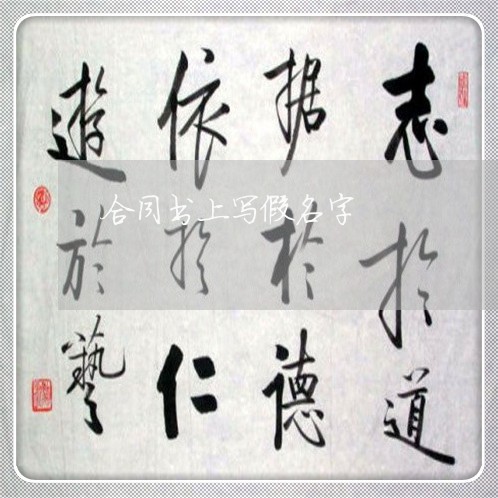 志於道
据於德
依於仁
遊於藝
合同书上写假名字